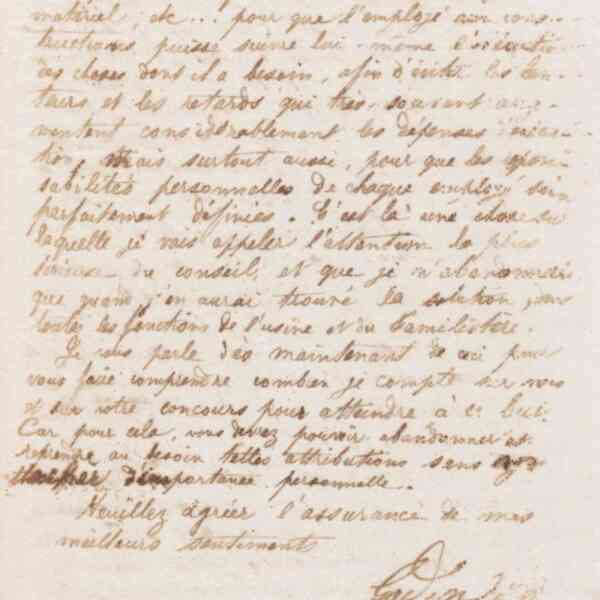 matériel, etc... pour que l'employé aux cons-
tructions puisse suivre lui-même l'exécution
des choses dont il a besoin, afin d'éviter les len-
teurs et les retards qui très souvent aug-
mentent considérablement les dépenses d'exécu-
tion, Mais surtout aussi, pour que les respon-
sabilités personnelles de chaque employé soient
parfaitement définies. C'est là une chose sur
laquelle je vais appeler l'attention la plus
sérieuse du conseil, et que je n'abandonnerai
que quand j'en aurai trouvé la solution pour
toutes les fonctions de l'usine et du Familistère.
Je vous parle dès maintenant de ceci pour
vous faire comprendre combien je compte sur vous
et sur votre concours pour atteindre à ce but.
Car pour cela, vous devez pouvoir abandonner et
reprendre au besoin telles attributions sans y
attacher d'importance personnelle.
Veuillez agréer l'assurance de mes
meilleurs sentiments
Godin